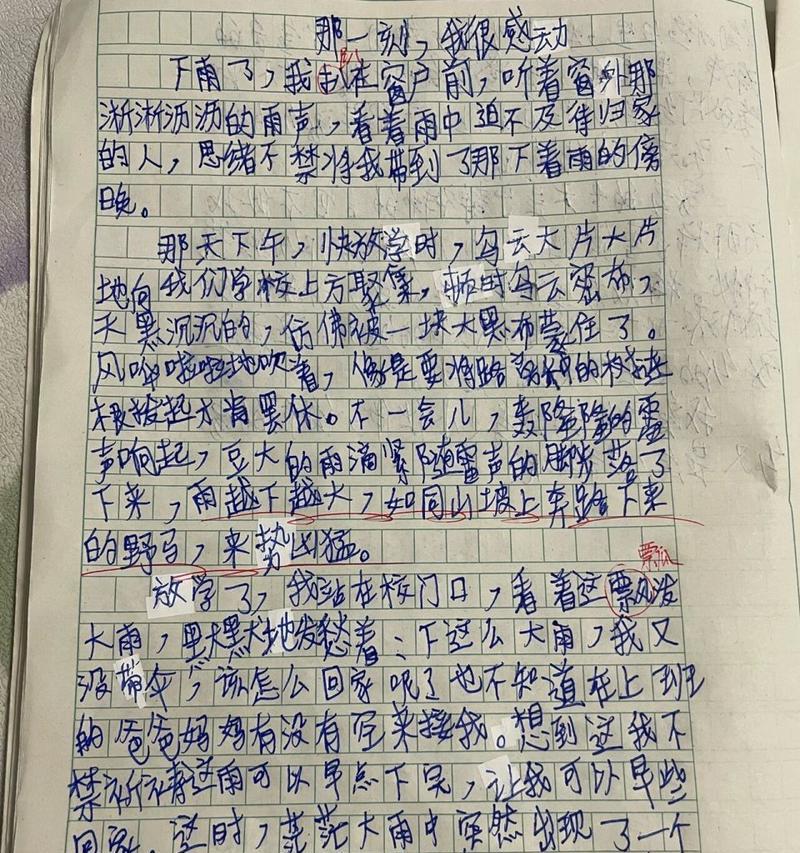 那一刻，我很感动
下雨了，我趴在窗户前，听着窗外那
淅淅沥沥的雨声，看着雨中迫不及待归家
的人，思绪不禁将我带到了那下着雨的傍
晚。
那天下午，快放学时，乌云大片大片
地向我们学校上方聚集，顿时乌云密布，
天黑沉沉的，仿佛被一块大黑布蒙住了。
风哗啦啦地吹着，像是要将路旁的树连
根拔起才肯罢休。不一会儿，轰隆隆的雷
声响起，豆大的雨滴紧随雷声的脚步落了
下来，雨越下越大，如同山坡上奔跑下来
的野马，来势凶猛。
瓢
放学了，我站在校门口，看着这瓢泼
大雨，默默地发愁着：下这么大雨，我又
没带伞，该怎么回家呢？也不知道在上班
的爸爸妈妈有没有空来接我。想到这我不
禁祈祷这雨可以早点下完，让我可以早些
回家。这时，茫茫大雨中突然出现了一个